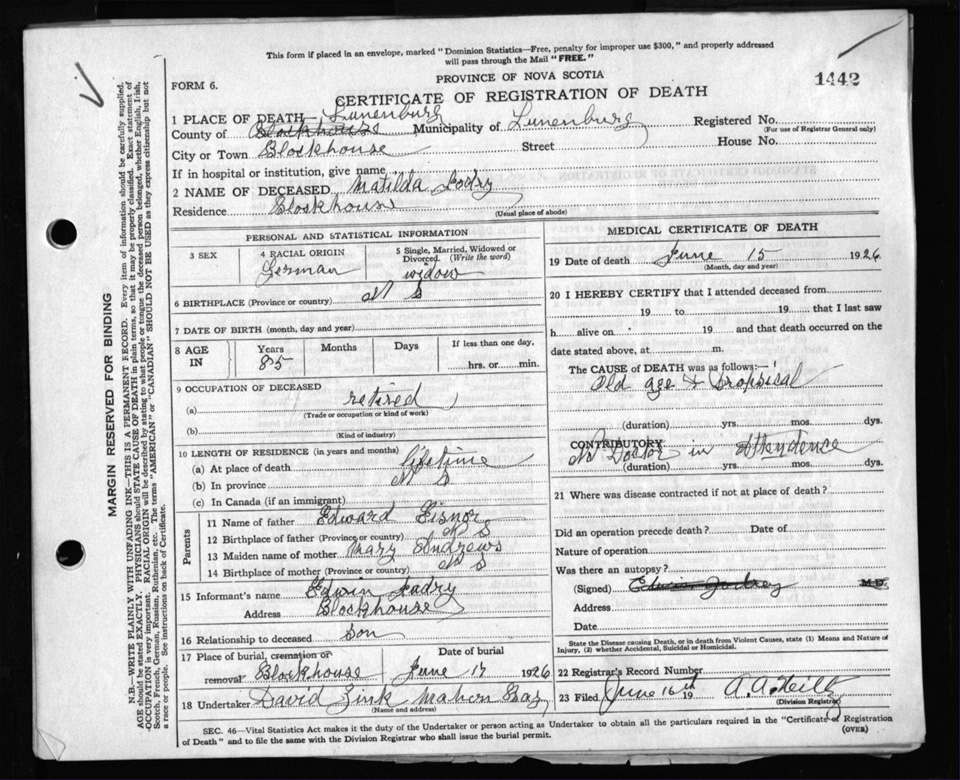 This form if placed in an envelope, marked "Dominion Statistics—Free, penalty for improper use $300," and properly addressed
will pass through the Mail "FREE."
PROVINCE OF NOVA SCOTIA
FORM 6.
1442
CERTIFICATE OF REGISTRATION OF DEATH
1 PLACE OF DEATH— Lunenburg
County of Blockhouse Municipality of Lunenburg Registered No.
(For use of Registrar General only)
City or Town Blockhouse Street House No.
If in hospital or institution, give name
2 NAME OF DECEASED Matilda Godry
Residence Blockhouse
(Usual place of abode)
PERSONAL AND STATISTICAL INFORMATION
3 SEX
4 RACIAL ORIGIN
German
5 Single, Married, Widowed or
Divorced. (Write the word)
widow
6 BIRTHPLACE (Province or country) N S
7 DATE OF BIRTH (month, day and year)
8 AGE
IN
Years
85
Months
Days
If less than one day,
hrs. or min.
9 OCCUPATION OF DECEASED
(a) retired
(Trade or occupation or kind of work)
(b)
(Kind of industry)
10 LENGTH OF RESIDENCE (in years and months)
(a) At place of death lifetime
(b) In province N S
(c) In Canada (if an immigrant)
Parents
11 Name of father Edward Eisnor
12 Birthplace of father (Province or country) N S
13 Maiden name of mother Mary Andrews
14 Birthplace of mother (Province or country) N S
15 Informant's name Edwin Godry
Address Blockhouse
16 Relationship to deceased Son
17 Place of burial, cremation or
removal Blockhouse
Date of burial
June 17 1926
18 Undertaker David Zink Mahon Bay
(Name and address)
MEDICAL CERTIFICATE OF DEATH
19 Date of death June 15 1926
(Month, day and year)
20 I HEREBY CERTIFY that I attended deceased from
19 to 19 that I last saw
h alive on 19 and that death occurred on the
date stated above, at m.
The CAUSE of DEATH was as follows:—
Old age & Dropsical
(duration) yrs. mos. dys.
CONTRIBUTORY
No Doctor in Attendence
(duration) yrs. mos. dys.
21 Where was disease contracted if not at place of death?
Did an operation precede death? Date of
Nature of operation
Was there an autopsy?
(Signed) Edwin Godrey M.D.
Address
Date
State the Disease causing Death, or in death from Violent Causes, state (1) Means and Nature of
Injury, (2) whether Accidental, Suicidal or Homicidal.
22 Registrar's Record Number
23 Filed June 16th 19
(Division Registrar)
SEC. 46—Vital Statistics Act makes it the duty of the Undertaker or person acting as Undertaker to obtain all the particulars required in the "Certificate of Registration
of Death" and to file the same with the Division Registrar who shall issue the burial permit.
(OVER)
MARGIN RESERVED FOR BINDING
N.B.—WRITE PLAINLY WITH UNFADING INK—THIS IS A PERMANENT RECORD. Every item of information should be carefully supplied.
AGE should be stated EXACTLY. PHYSICIANS should STATE CAUSE OF DEATH in plain terms, so that it may be properly classified. Exact statement of
OCCUPATION is very important. RACIAL ORIGIN will be described by stating to what people or tongue the deceased person belonged, whether English, Irish,
Scotch, French, German, Russian, Ruthenian, etc. The terms "AMERICAN" or "CANADIAN" SHOULD NOT BE USED as they express citizenship but not
a race or people. See instructions on back of Certificate.